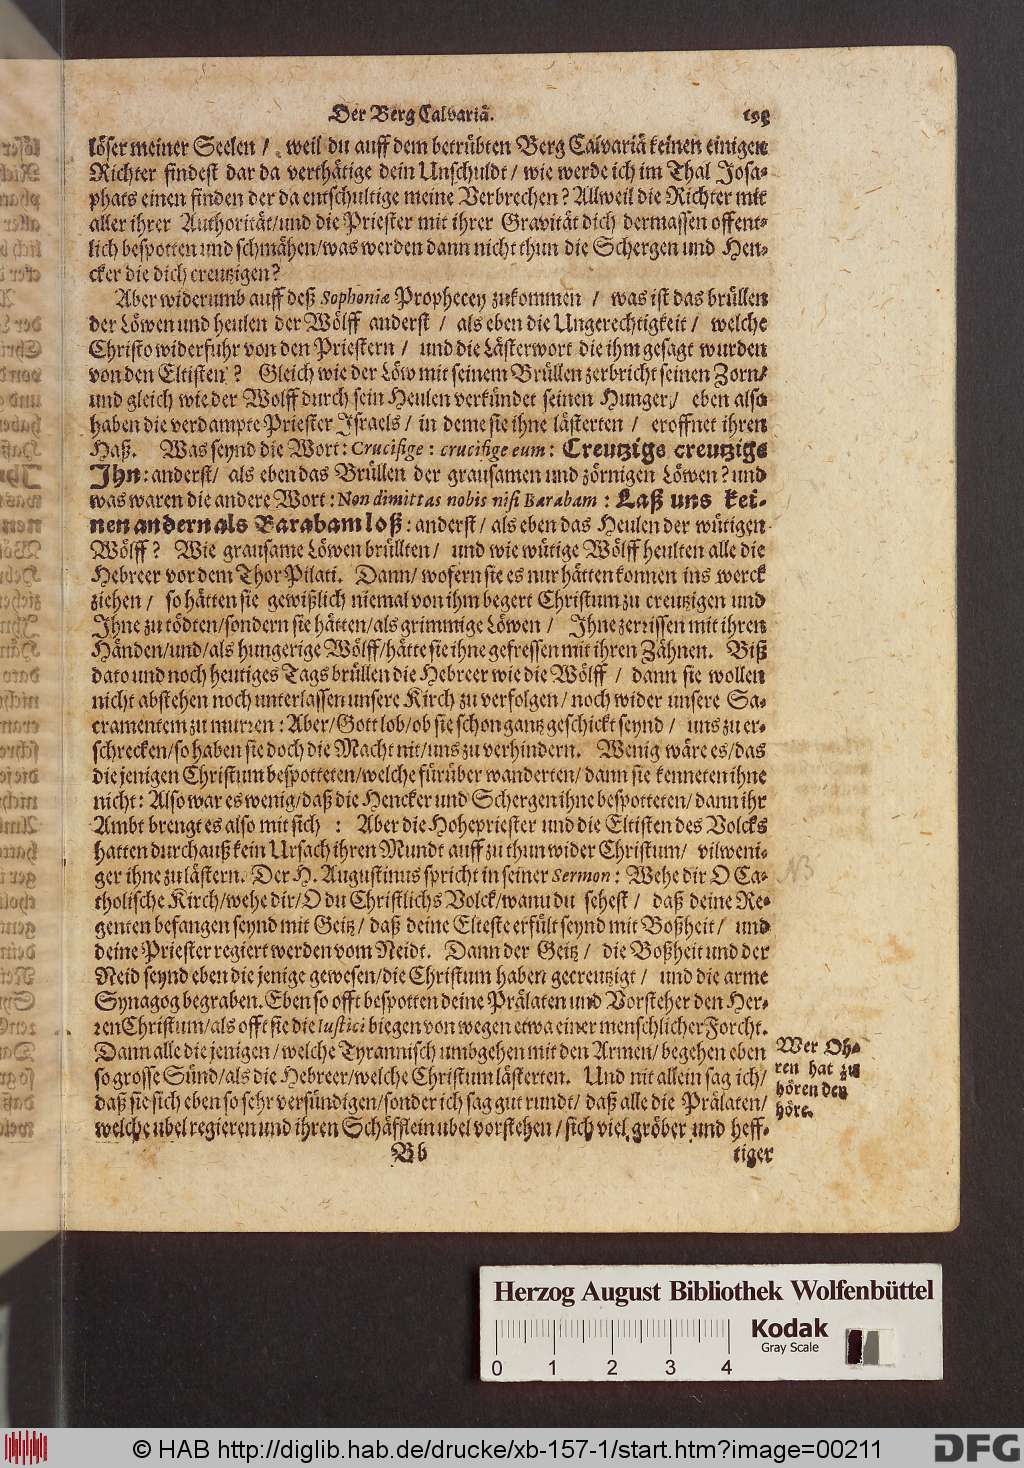 Der Berg Calvariæ.
löser meiner Seelen / weil du auff dem betrübten Berg Calvariæ keinen einigen
Richter findest dar da verthätige dein Unschuldt / wie werde ich im Thal Josa-
phats einen finden der da entschultige meine Verbrechen? Allweil die Richter mit
aller ihrer Authorität / und die Priester mit ihrer Gravität dich dermassen offent-
lich bespotten und schmähen / was werden dann nicht thun die Schergen und Hen-
cker die dich creutzigen?
Aber widerumb auff deß Sophoniæ Prophecey zukommen / was ist das brüllen
der Löwen und heulen der Wölff anderst / als eben die Ungerechtigkeit / welche
Christo widerfuhr von den Priestern / und die Lästerwort die ihm gesagt wurden
von den Eltisten? Gleich wie der Löw mit seinem Brüllen zerbricht seinen Zorn /
und gleich wie der Wolff durch sein Heulen verkündet seinen Hunger / eben also
haben die verdampte Priester Israels / in deme sie ihne lästerten / eroffnet ihren
Haß. Was seynd die Wort: Crucifige: crucifige eum: Creutzigs creutzigs
Ihn: anderst / als eben das Brüllen der grausamen und zörnigen Löwen? und
was waren die andere Wort: Non dimittas nobis nisi Barabam: Laß uns kei-
nen andern als Barabam loß: anderst / als eben das Heulen der wütigen
Wölff? Wie grausame Löwen brüllten / und wie wütige Wölff heulten alle die
Hebreer vor dem Thor Pilati. Dann / wofern sie es nur hätten konnen ins werck
ziehen / so hätten sie gewißlich niemal von ihm begert Christum zu creutzigen und
Ihne zu tödten / sondern sie hätten / als grimmige Löwen / Ihne zerrissen mit ihren
Händen / und / als hungerige Wölff / hätte sie ihne gefressen mit ihren Zähnen. Biß
dato und noch heutiges Tags brüllen die Hebreer wie die Wölff / dann sie wollen
nicht abstehen noch unterlassen unsere Kirch zu verfolgen / noch wider unsere Sa-
cramentem zu murren: Aber / Gott lob / ob sie schon gantz geschickt seynd / uns zu er-
schrecken / so haben sie doch die Macht nit / uns zu verhindern. Wenig wäre es / das
die jenigen Christum bespotteten / welche fürüber wanderten / dann sie kenneten ihne
nicht: Also war es wenig / daß die Hencker und Schergen ihne bespotteten / dann ihr
Ambt brengt es also mit sich: Aber die Hohepriester und die Eltisten des Volcks
hatten durchauß kein Ursach ihren Mundt auff zu thun wider Christum / vilweni-
ger ihne zu lästern. Der H. Augustinus spricht in seiner Sermon: Wehe dir O Ca-
tholische Kirch / wehe dir / O du Christlichs Volck / wanu du sehest / daß deine Re-
genten befangen seynd mit Geitz / daß deine Elteste erfült seynd mit Boßheit / und
deine Priester regiert werden vom Neidt. Dann der Geitz / die Boßheit und der
Neid seynd eben die jenige gewesen / die Christum haben gecreutzigt / und die arme
Synagog begraben. Eben so offt bespotten deine Prälaten und Vorsteher den Her-
ren Christum / als offt sie die Iustici biegen von wegen etwa einer menschlicher Forcht.
Dann alle die jenigen / welche Tyrannisch umbgehen mit den Armen / begehen eben
so grosse Sünd / als die Hebreer / welche Christum lästerten. Und nit allein sag ich /
daß sie sich eben so sehr versündigen / sonder ich sag gut rundt / daß alle die Prälaten /
welche ubel regieren und ihren Schäfflein ubel vorstehen / sich viel gröber und heff-
Wer Oh-
ren hat zu
hören den
höre.
Bb
tiger
NB
Herzog August Bibliothek Wolfenbüttel
Kodak
Gray Scale
0 1 2 3 4
© HAB http://diglib.hab.de/drucke/xb-157-1/start.htm?image=00211
DFG